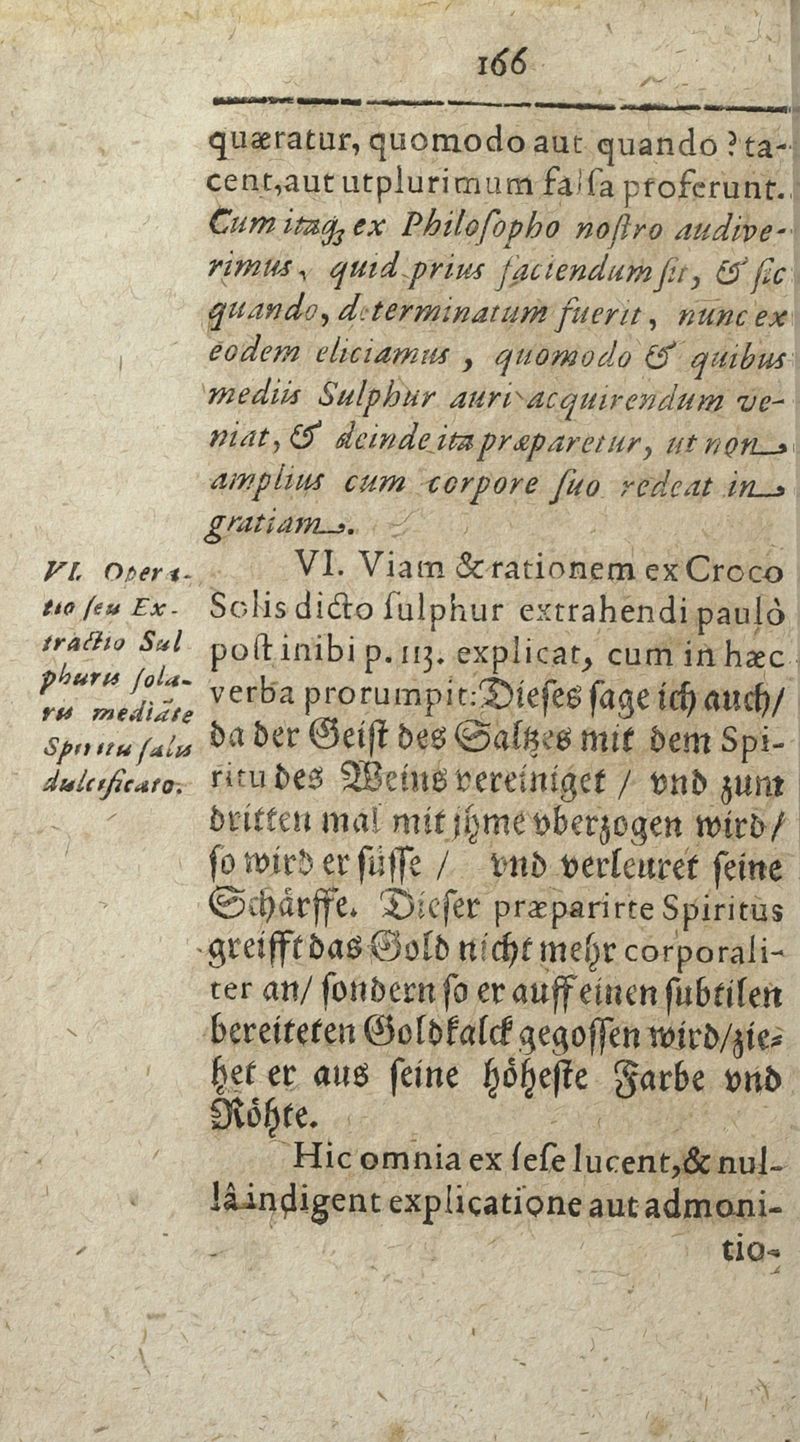 166
quæratur, quomodo aut quando ? ta-
cent,aut utplurimum falſa proferunt.
Cum itaq; ex Philoſopho noſtro audive-
rimus, quid prius faciendum ſit, & ſic
quando, determinatum fuerit, nunc ex
eodem eliciamus , quomodo & quibus
mediis Sulphur auri acquirendum ve-
niat, & deinde ita præparetur, ut non
amplius cum corpore ſuo redeat in
gratiam.
VI. Opera-
tio ſeu Ex-
tractio Sul
phuris ſola-
ris mediãte
Spiritu ſalis
dulcificato.
VI. Viam & rationem ex Croco
Solis dicto ſulphur extrahendi paulò
poſt inibi p. 113. explicat, cum in hæc
verba prorumpit: Dieſes ſage ich auch/
da der Geiſt des Saltzes mit dem Spi-
ritu des Weins vereiniget / vnd zum
dritten mal mit jhme vberzogen wird/
ſo wird er ſüſſe / vnd verleuret ſeine
Schärffe. Dieſer præparirte Spiritus
greifft das Gold nicht mehr corporali-
ter an/ ſondern ſo er auff einen ſubtilen
bereiteten Goldkalck gegoſſen wird/zie-
het er aus ſeine höheſte Farbe vnd
Röhte.
Hic omnia ex ſeſe lucent,& nul-
lâ indigent explicatione aut admoni-
tio-